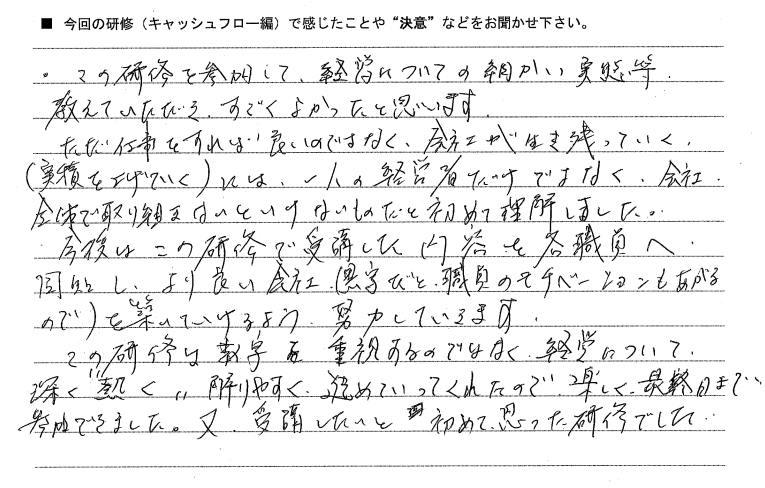 ■ 今回の研修（キャッシュフロー編）で感じたことや“決意”などをお聞かせ下さい。
・この研修を参加して、経営についての細かい実態等
教えていただき、すごくよかったと思います。
ただ仕事をすれば良いのではなく、会社が生き残っていく、
(実積を上げていく)には、一人の経営者だけではなく、会社
全体で取り組まないといけないものだと初めて理解しました。
今後はこの研修で受講した内容を各職員へ
周知し、より良い会社(黒字だと、職員のモチベーションもあがる
ので)を築いていけるよう、努力していきます。
この研修は数字を重視するのではなく、経営について、
深く“熱く”解りやすく、進めていってくれたので、楽しく、最終日まで
参加できました。又、受講したいと初めて、思った研修でした。